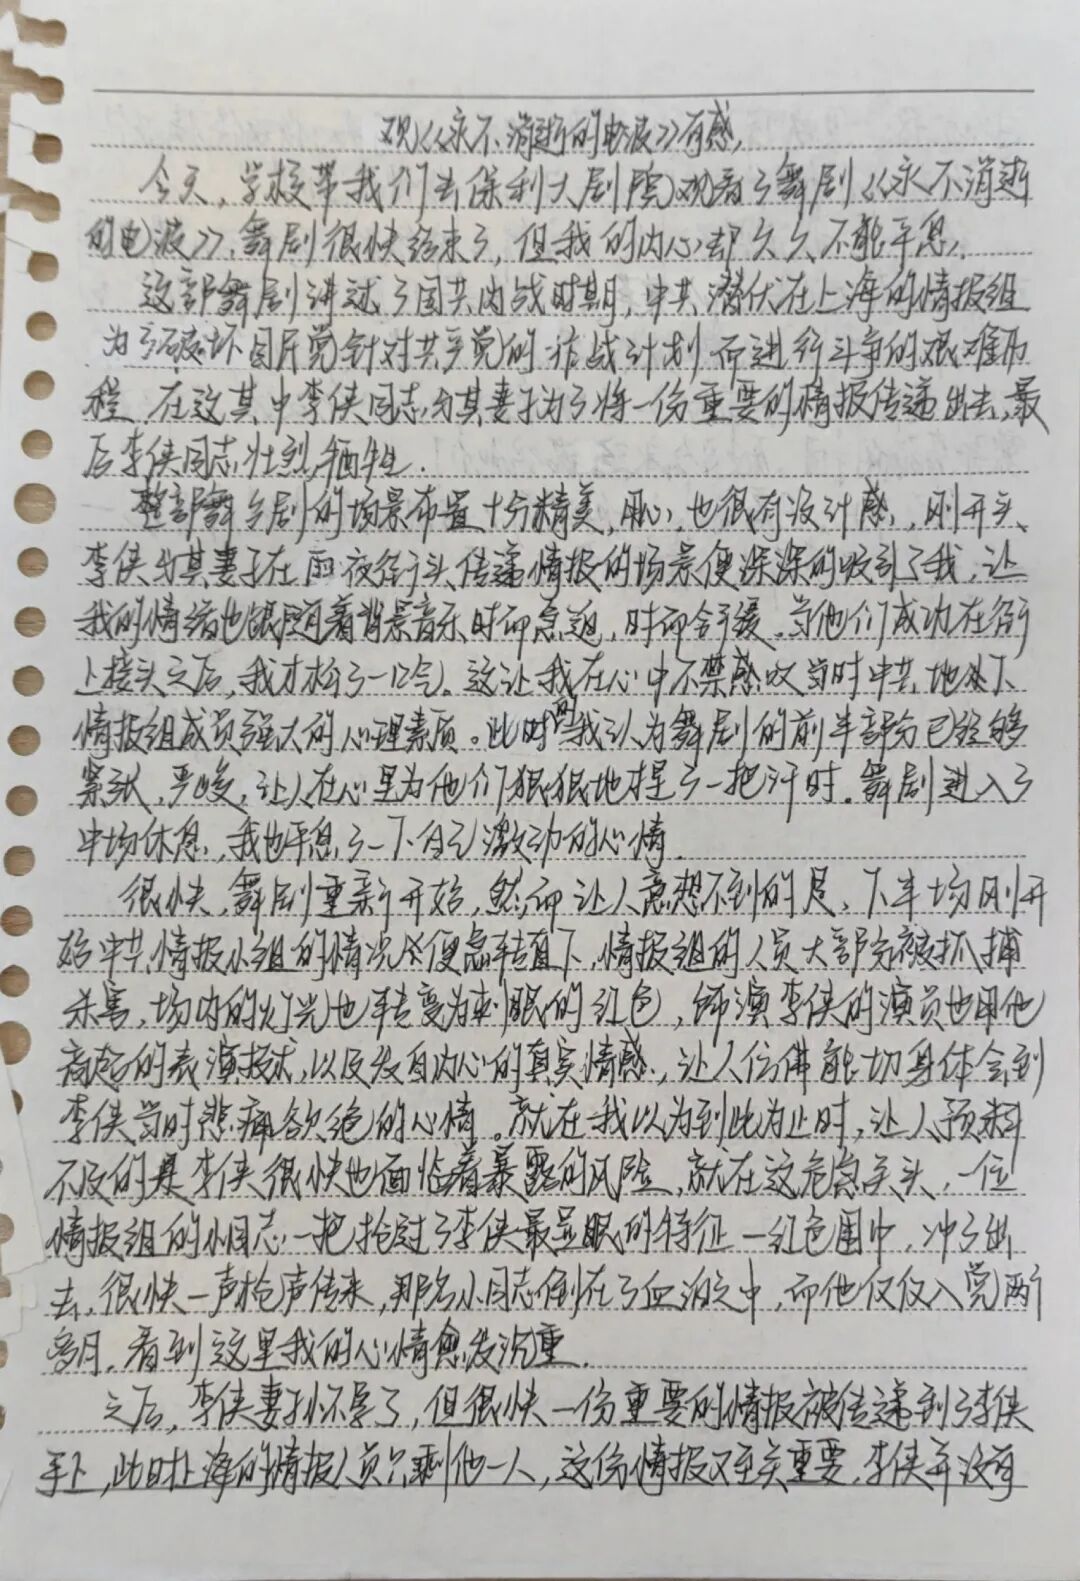 观《永不消逝的电波》有感
今天,学校带我们去保利大剧院观看了舞剧《永不消逝
的电波》,舞剧很快结束了,但我的内心却久久不能平息,
这部舞剧讲述了国共内战时期,中共潜伏在上海的情报组
为了破坏国民党针对共产党的作战计划而进行斗争的艰难历
程.在这其中李侠同志与其妻子为了将一份重要的情报传递出去,最
后李侠同志壮烈牺牲.
整部舞剧的场景布置十分精美,用心,也很有设计感,刚开头、
李侠与其妻子在雨夜街头传递情报的场景便深深的吸引了我,让
我的情绪也跟随着背景音乐时而急迫,时而舒缓.当他们成功在街
上接头之后,我才松了一口气。这让我在心中不禁感叹当时中共地下
情报组成员强大的心理素质。此时我认为舞剧的前半部分已经够
紧张,严峻,让人在心里为他们狠狠地捏了一把汗时.舞剧进入了
中场休息,我也平息了一下自己激动的心情.
很快,舞剧重新开始,然而让人意想不到的是、下半场刚开
始中共情报小组的情况便急转直下,情报组的人员大部分被抓捕
杀害,场内的灯光也转变为刺眼的红色,饰演李侠的演员也用他
高超的表演技术,以及发自内心的真实情感,让人仿佛能切身体会到
李侠当时悲痛欲绝的心情。就在我以为到此为止时,让人预料
不及的是李侠很快也面临着暴露的风险,就在这危急关头,一位
情报组的小同志一把抢过了李侠最显眼的特征—红色围巾,冲了出
去,很快一声枪声传来,那名小同志倒在了血泊之中,而他仅仅入党两个
多月.看到这里我的心情愈发沉重.
之后,李侠妻子怀孕了,但很快一份重要的情报被传递到了李侠
手上,此时上海的情报人员只剩他一人,这份情报又至关重要,李侠并没有